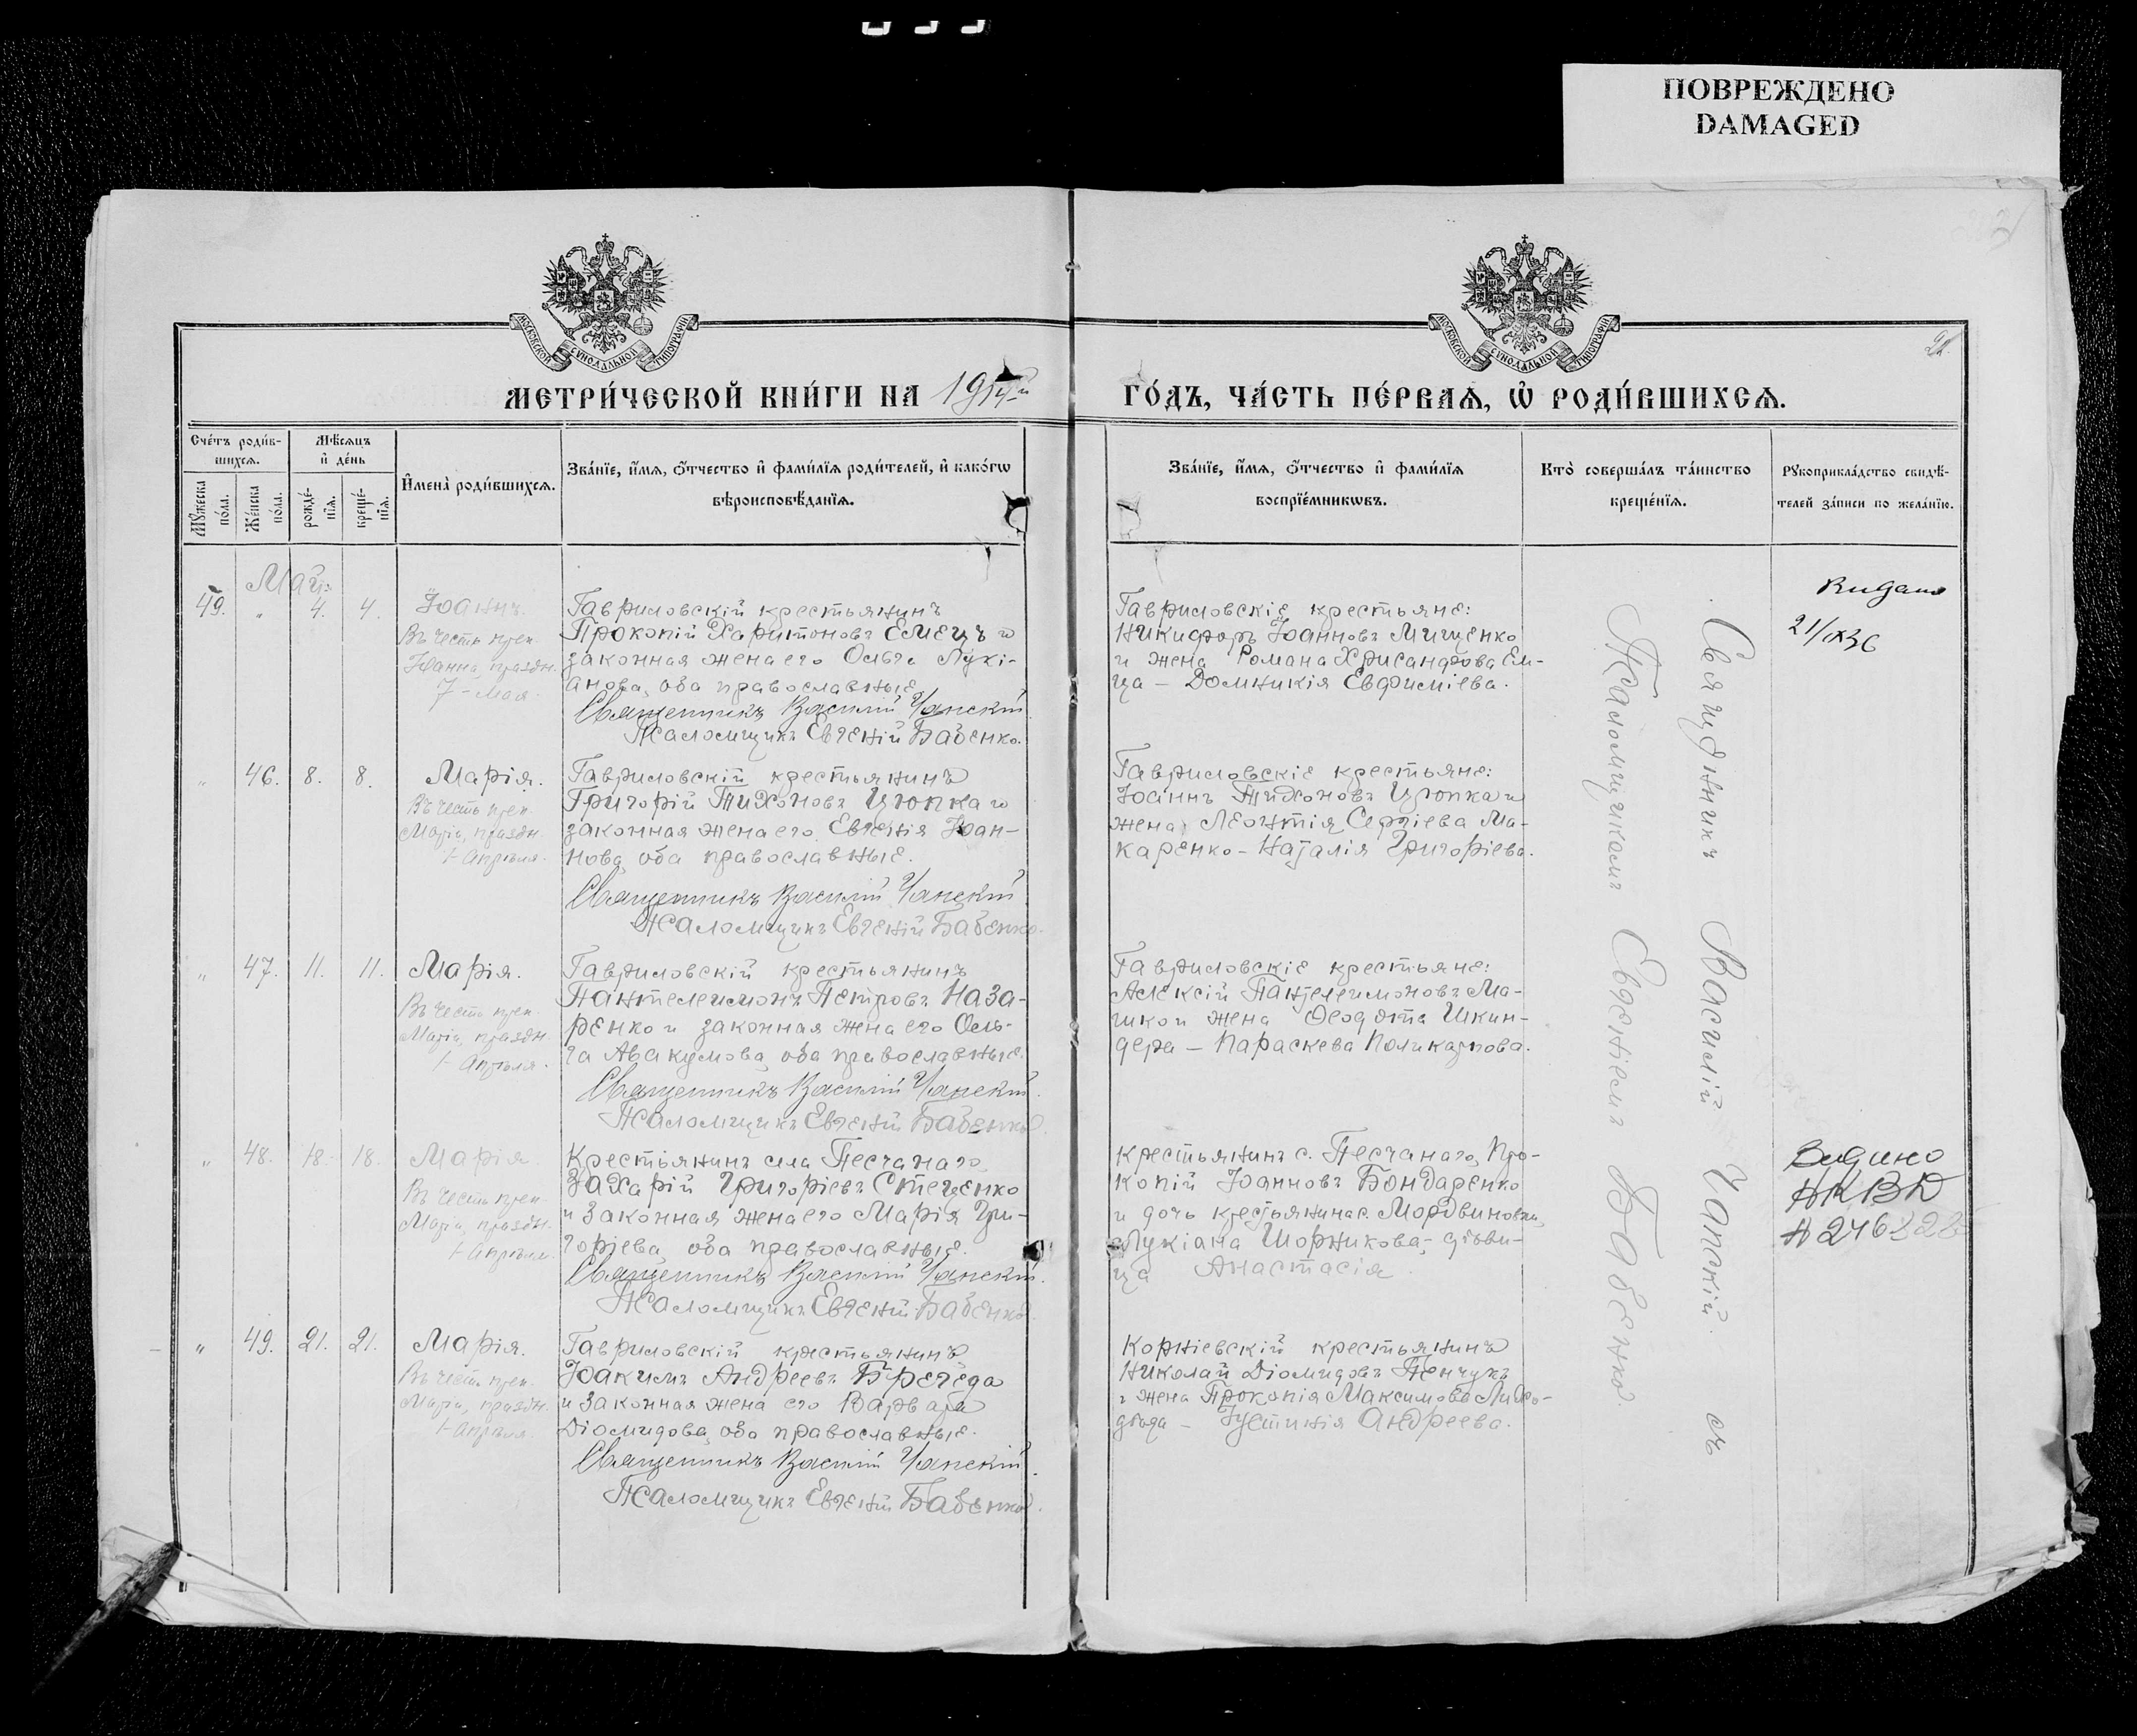 ПОВРЕЖДЕНО
DAMAGED
МОСКОВСКОЙ СѴНОДАЛЬНОЙ ТИПОГРАФІИ
МОСКОВСКОЙ СѴНОДАЛЬНОЙ ТИПОГРАФІИ
МЕТРИ́ЧЕСКОЙ КНИ́ГИ НА 1914й
ГО́ДЪ, ЧА́СТЬ ПЕ́РВАѦ, Ѡ҆ РОДИ́ВШИХСѦ.
Сче́тъ роди́в-
шихсѧ.
Мѣ́сѧцъ
и҆ де́нь
Мꙋ́жеска
по́ла.
Же́нска
по́ла.
рожде́-
нїѧ.
креще́-
нїѧ.
И҆мена̀ роди́вшихсѧ.
Зва́нїе, и҆́мѧ, ѻ҆́тчество и҆ фами́лїѧ роди́телей, и҆ како́гѡ
вѣроисповѣ́данїѧ.
Зва́нїе, и҆́мѧ, ѻ҆́тчество и҆ фами́лїѧ
воспрїе́мникѡвъ.
Кто̀ соверша́лъ та́инство
креще́нїѧ.
Рꙋкоприкла́дство свидѣ́-
телей за́писи по жела́нїю.
Май
49. " 4. 4. Іоаннъ.
Въ честь преп.
Іоанна, праздн.
7-Мая.
Гавриловскій крестьянинъ
Прокопій Харитоновъ Емецъ и
законная жена его Ольга Лукі-
анова, оба православные.
Священникъ Василій Чапскій
Псаломщикъ Евгеній Бабенко.
Гавриловскіе крестьяне:
Никифоръ Іоанновъ Мищенко
и жена Романа Хрисанфова Ем-
ца - Домникія Евфиміева.
21/IX36
" 46. 8. 8. Марія.
Въ честь преп.
Маріи, праздн.
1-Апрѣля.
Гавриловскій крестьянинъ
Григорій Тихоновъ Цюпка и
законная жена его Евгенія Іоан-
нова, оба православные.
Священникъ Василій Чапскій
Псаломщикъ Евгеній Бабенко.
Гавриловскіе крестьяне:
Іоаннъ Тихоновъ Цюпка и
жена Леонтія Сергіева Ма-
каренко - Наталія Григоріева.
" 47. 11. 11. Марія.
Въ честь преп.
Маріи, праздн.
1-Апрѣля.
Гавриловскій крестьянинъ
Пантелеимонъ Петровъ Наза-
ренко и законная жена его Оль-
га Авакумова, оба православные.
Священникъ Василій Чапскій.
Псаломщикъ Евгеній Бабенко.
Гавриловскіе крестьяне:
Алексій Пантелеимоновъ Ма-
шко и жена Ѳеодота Шкин-
дера - Параскева Поликарпова.
" 48. 18. 18. Марія.
Въ честь преп.
Маріи, праздн.
1-Апрѣля.
Крестьянинъ села Песчанаго,
Захарій Григоріевъ Стеценко
и законная жена его Марія Гри-
горіева, оба православные.
Священникъ Василій Чапскій.
Псаломщикъ Евгеній Бабенко.
Крестьянинъ с. Песчанаго, Про-
копій Іоанновъ Бондаренко
и дочь крестьянина с. Мордвиновки,
Лукіана Шорникова, дѣви-
ца Анастасія.
Видано
НКВД
№
" 49. 21. 21. Марія.
Въ честь преп.
Маріи, праздн.
1-Апрѣля.
Гавриловскій крестьянинъ
Іоакимъ Андреевъ Брегеда
и законная жена его Варвара
Діомидова, оба православные.
Священникъ Василій Чапскій.
Псаломщикъ Евгеній Бабенко.
Корніевскій крестьянинъ
Николай Діомидовъ Пенчукъ
и жена Прокопія Максимова Лихо-
дѣда - Іустинія Андреева.
Священникъ Василій Чапскій съ
Псаломщикомъ Евгеніемъ Бабенко.